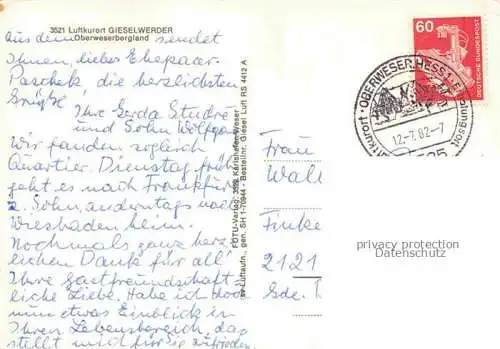 3521 Luftkurort GIESELWERDER
Oberweserbergland
aus dem sendet
Ihnen, lieber Ehepaar
Paschek die herzlichsten
Grüße Ihre Gerda Studre
und Sohn Wolfgang
Wir fanden sogleich
Quartier. Dienstag früh
geht es nach Frankfurt
z. Sohn, anderntags nach
Wiesbaden heim.
Nochmals ganz herz
lichen Dank für all'
Ihre Gastfreundschaft =
liche Liebe. Habe ich doch
nun etwas Einblick in
Ihren Lebensbereich, das
stellt mich für Sie zufrieden.
FOTU-Verlag, 3522 Karlshafen/Weser
sv Luftaufn., gen. SH 1-70944 - Bestellnr. Giesel Luft RS 4412 A
60
DEUTSCHE BUNDESPOST
OBERWESER, HESS 1
Luftkurort
12.-7.82-7
Frau
Wall
Finke
2121
Gde.
privacy protection
Datenschutz